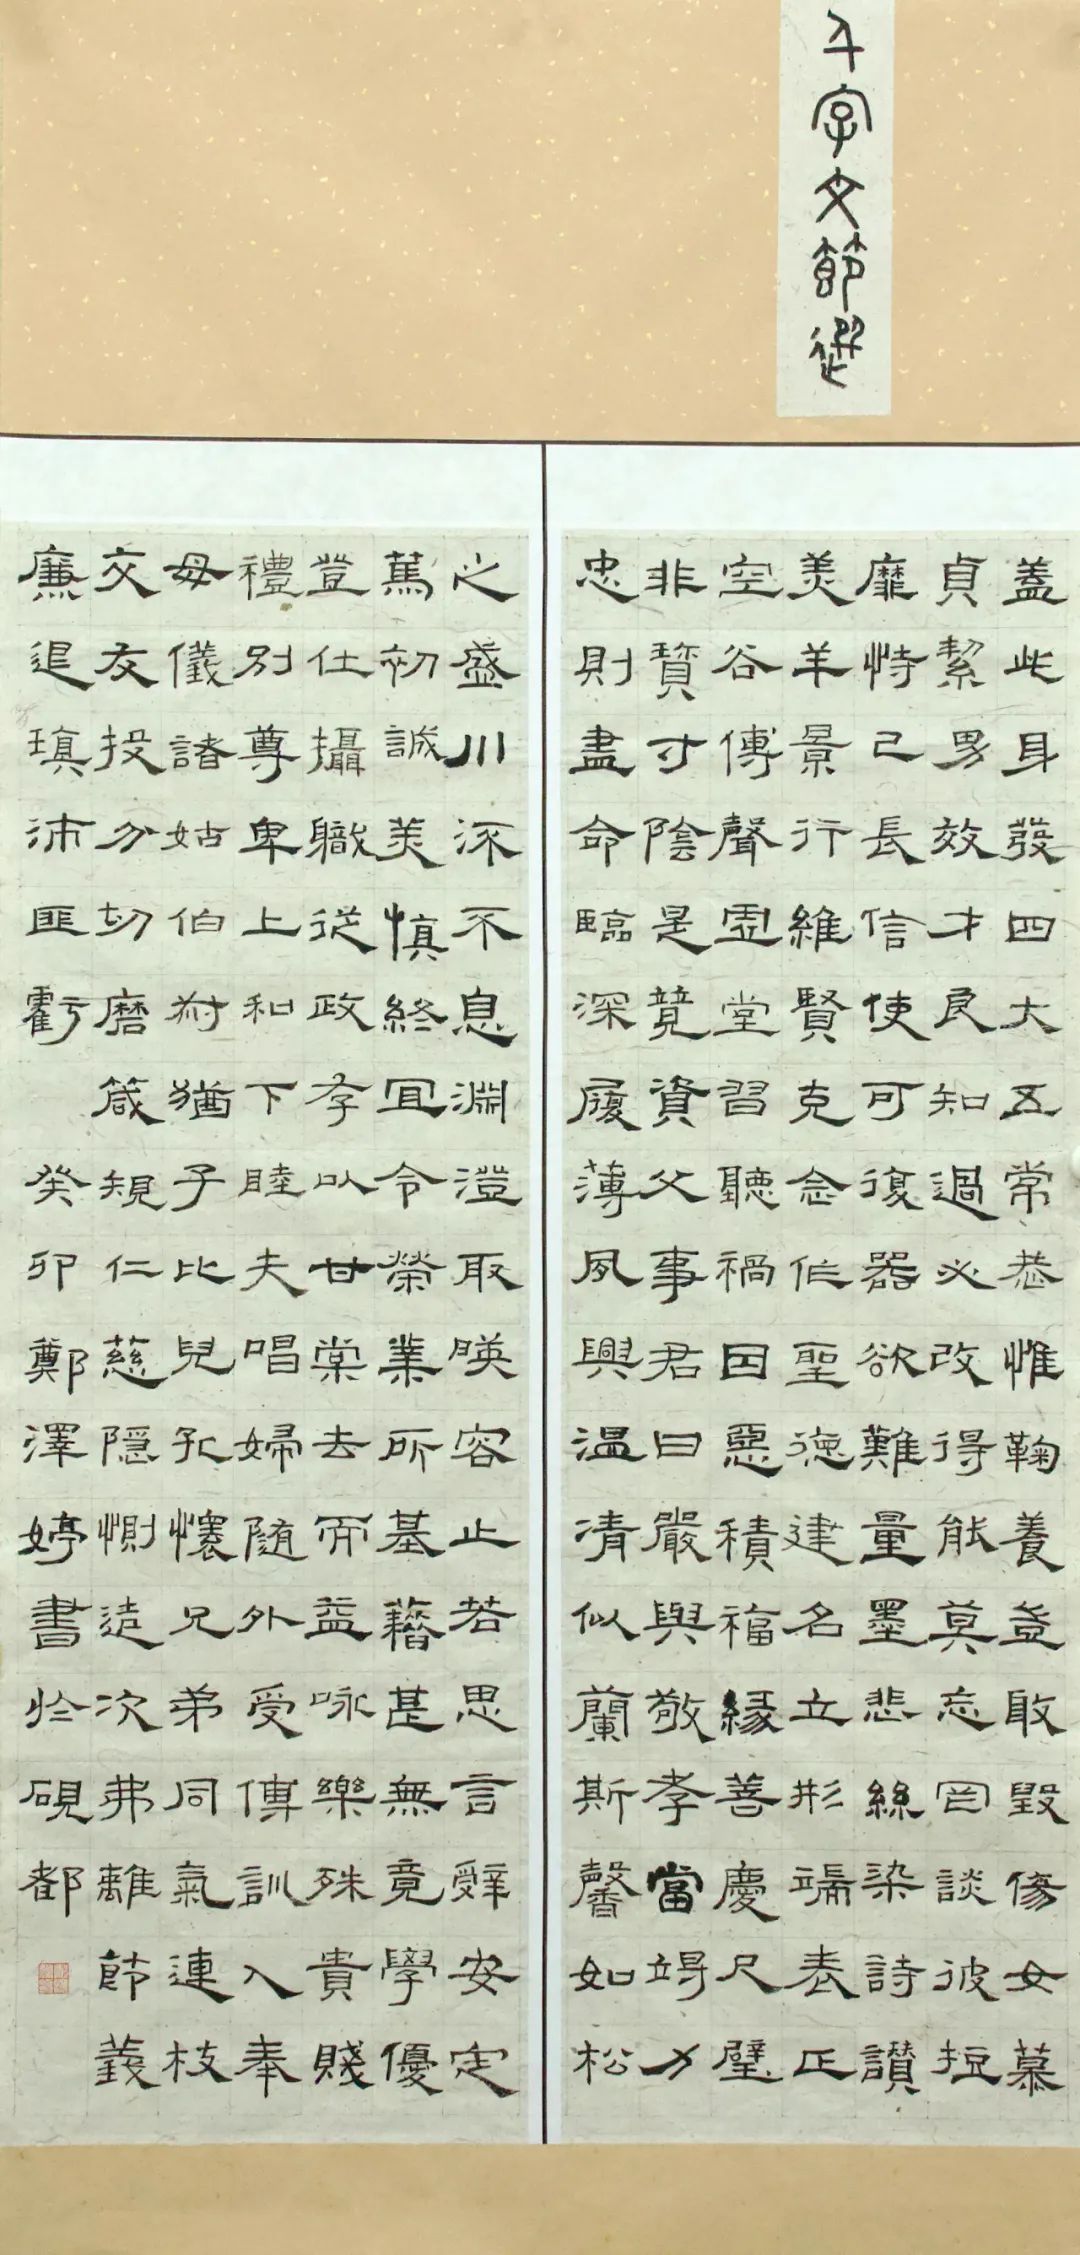 千字文節選
蓋此身發四大五常恭惟鞠養豈敢毀傷女慕
貞絜男效才良知過必改得能莫忘罔談彼短
靡恃己長信使可復器欲難量墨悲絲染詩讃
羔羊景行維賢克念作聖德建名立形端表正
空谷傳聲虛堂習聽禍因惡積福緣善慶尺璧
非寶寸陰是競資父事君曰嚴與敬孝當竭力
忠則盡命臨深履薄夙興溫凊似蘭斯馨如松
之盛川流不息淵澄取暎容止若思言辭安定
篤初誠美慎終宜令榮業所基藉甚無竟學優
登仕攝職從政存以甘棠去而益咏樂殊貴賤
禮別尊卑上和下睦夫唱婦随外受傅訓入奉
母儀諸姑伯叔猶子比兒孔懷兄弟同氣連枝
交友投分切磨箴規仁慈隱惻造次弗離節義
廉退顛沛匪虧 癸卯鄭澤婷書於硯都